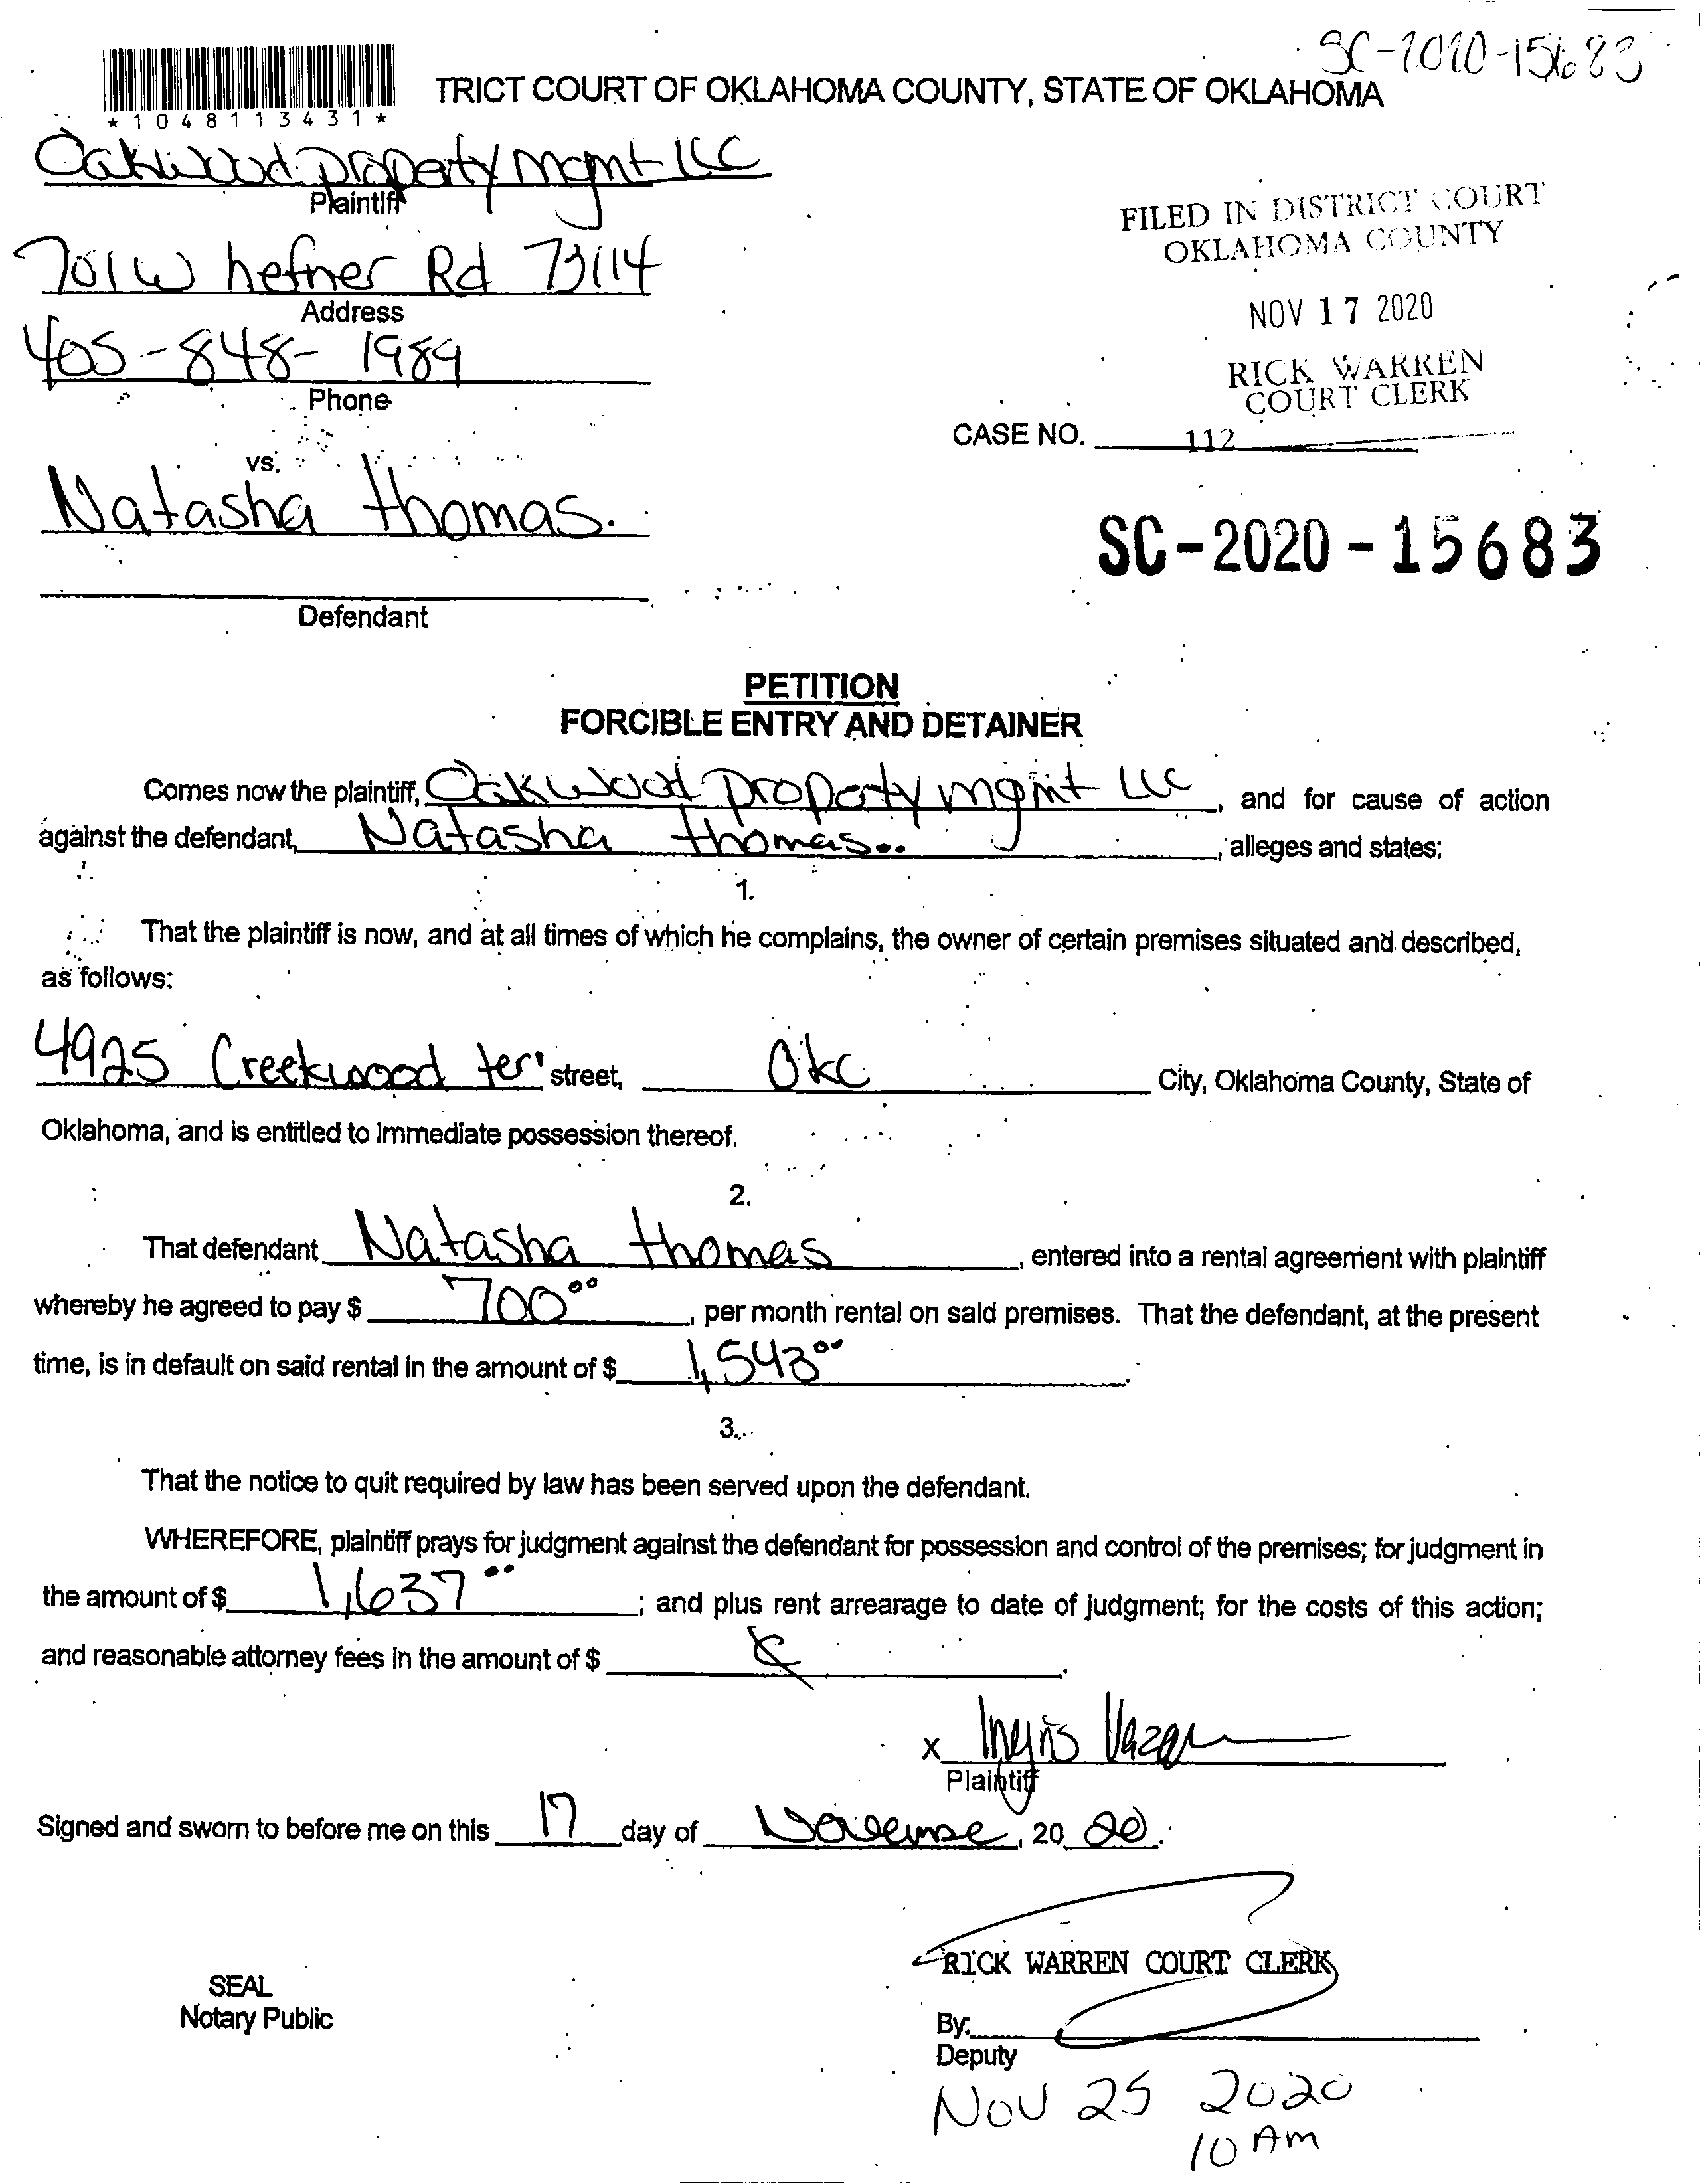 SC-2020-15683
TRICT COURT OF OKLAHOMA COUNTY, STATE OF OKLAHOMA
*1048113431*
Oakwood property mgmt LLC
Plaintiff
FILED IN DISTRICT COURT
OKLAHOMA COUNTY
701 W hefner Rd 73114
Address
NOV 17 2020
405-848-1989
Phone
RICK WARREN
COURT CLERK
CASE NO. 112
vs.
Natasha thomas.
SC-2020-15683
Defendant
PETITION
FORCIBLE ENTRY AND DETAINER
Comes now the plaintiff, Oakwood property mgmt LLC, and for cause of action
against the defendant, Natasha thomas.. , alleges and states:
1.
That the plaintiff is now, and at all times of which he complains, the owner of certain premises situated and described,
as follows:
4925 Creekwood ter. street, Okc City, Oklahoma County, State of
Oklahoma, and is entitled to immediate possession thereof.
2.
That defendant Natasha thomas, entered into a rental agreement with plaintiff
whereby he agreed to pay $ 700.00, per month rental on said premises. That the defendant, at the present
time, is in default on said rental in the amount of $ 1,543.00.
3.
That the notice to quit required by law has been served upon the defendant.
WHEREFORE, plaintiff prays for judgment against the defendant for possession and control of the premises; for judgment in
the amount of $ 1,637.00; and plus rent arrearage to date of judgment; for the costs of this action;
and reasonable attorney fees in the amount of $
x
Plaintiff
Signed and sworn to before me on this 17 day of , 20 20.
RICK WARREN COURT CLERK
SEAL
Notary Public
By:
Deputy
NOV 25 2020
10 AM